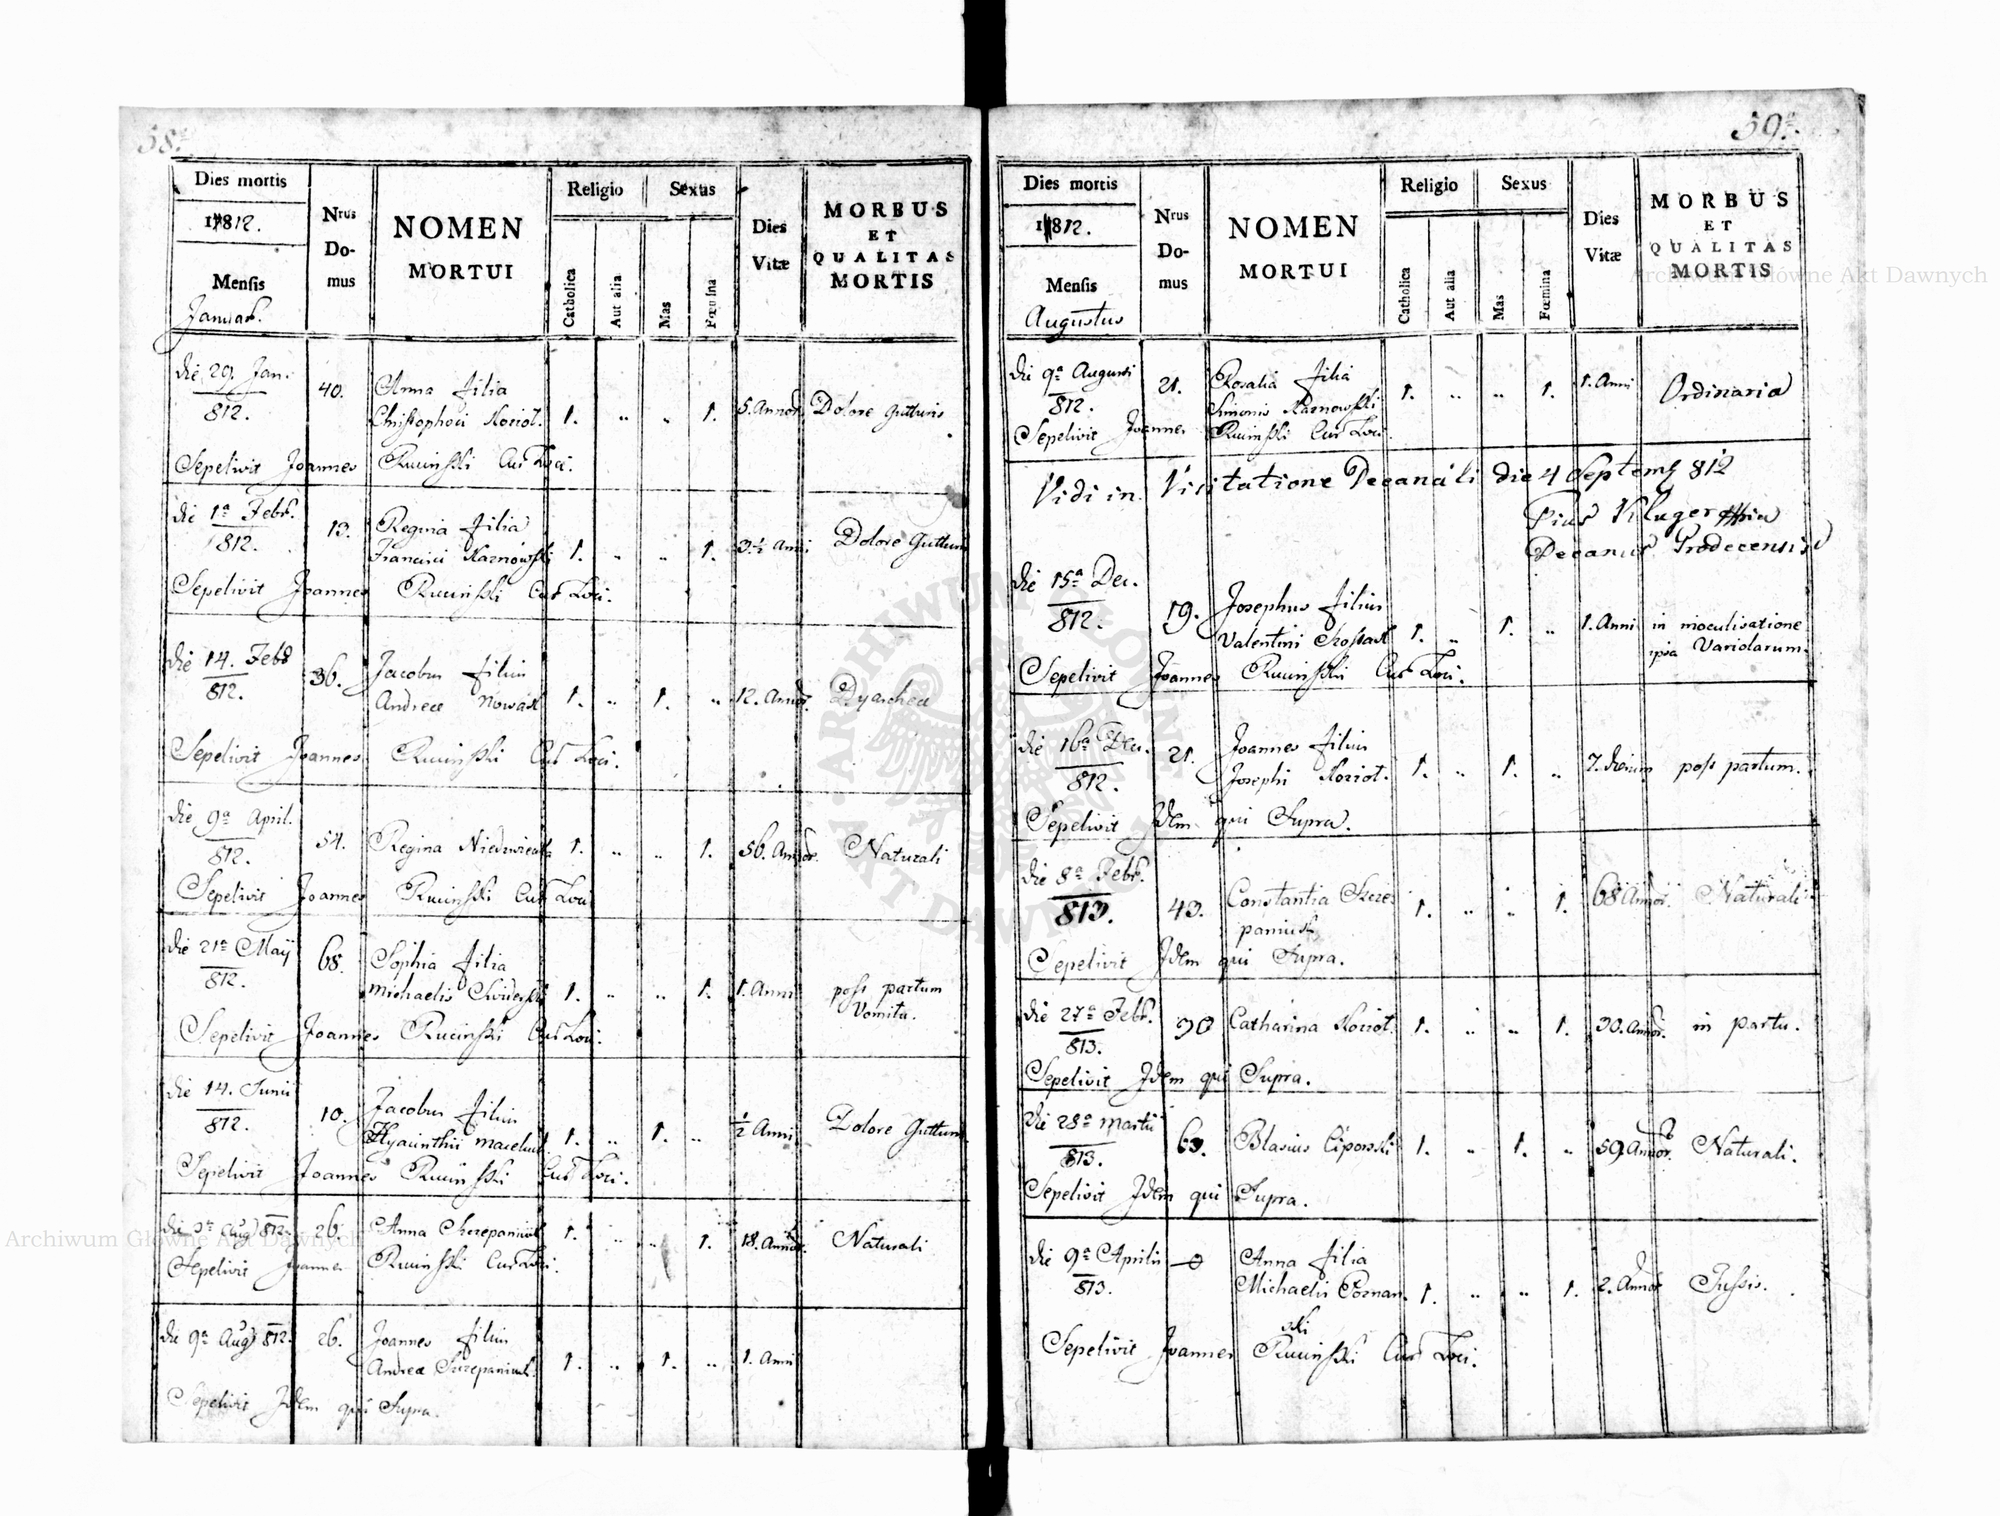 58.
Dies mortis
1812.
Mensis
Januar.
Nrus Do-mus
NOMEN
MORTUI
Religio
Catholica
Aut alia
Sexus
Mas
Fœmina
Dies
Vitæ
MORBUS
ET
QUALITAS
MORTIS
die 29. Jan. 40. Anna filia
812. Christophori Koziot. 1. „ „ 1. 5. Annor. Dolore gutturis
Sepelivit Joannes Ruciński Cur Loci.
die 1a Febr. 13. Regina filia
812. Francisci Kaznowski 1. „ „ 1. 3½ Anni Dolore Gutturis
Sepelivit Joannes Ruciński Cur Loci.
die 14. Febr 36. Jacobus filius
812. Andreæ Nowak 1. „ 1. „ 12. Annor. Dyarhea
Sepelivit Joannes Ruciński Cur Loci.
die 9a April. 54.
812. Regina 1. „ „ 1. 56. Annor. Naturali
Sepelivit Joannes Ruciński Cur Loci
die 21a Maij 68. Sophia filia
812. Michaelis 1. „ „ 1. 1. Anni post partum
Vomitu.
Sepelivit Joannes Ruciński Cur Loci.
die 14. Junii 10. Jacobus filius
812. Hyacinthii 1. „ 1. „ ½ Anni Dolore Gutturis
Sepelivit Joannes Ruciński Cur Loci.
die Aug 812. 26. Anna 1. „ „ 1. 18. Annor. Naturali
Sepelivit Joannes Ruciński Cur Loci.
die 9a Aug 812. 26. Joannes filius
Andreæ 1. „ 1. „ 1. Anni
Sepelivit Idem qui Supra.
59.
Dies mortis
1812.
Mensis
Augustus
Nrus Do-mus
NOMEN
MORTUI
Religio
Catholica
Aut alia
Sexus
Mas
Fœmina
Dies
Vitæ
MORBUS
ET
QUALITAS
MORTIS
die 9a Augusti 21. Rosalia filia
812. Simonis Kaznowski 1. „ „ 1. 1. Anni Ordinaria
Sepelivit Joannes Ruciński Cur Loci.
Vidi in Visitatione Decanali die 4 Septemb 812
Pius Kluger
Decanus Grodecensis
die 15a Dec. 19. Josephus filius
812. Valentini 1. „ 1. „ 1. Anni in inoculisatione
ipsa Variolarum.
Sepelivit Joannes Ruciński Cur Loci.
die 16a Dec. 21. Joannes filius
812. Josephi Koziot. 1. „ 1. „ 7. dierum post partum.
Sepelivit Idem qui Supra.
die 8a Febr.
813. 43. Constantia 1. „ „ 1. 68 Annor. Naturali
Sepelivit Idem qui Supra.
die 27a Febr. 30 Catharina Koziot. 1. „ „ 1. 30. Annor. in partu.
813.
Sepelivit Idem qui Supra.
die 28a Martii 63. Blasius Liporski 1. „ 1. „ 59. Annor. Naturali.
813.
Sepelivit Idem qui Supra.
die 9a Aprilis 0 Anna filia
813. Michaelis Poznan- 1. „ „ 1. 2. Annor Tussis.
ski
Sepelivit Joannes Ruciński Cur Loci.
ARCHIWUM GŁÓWNE AKT DAWNYCH
Archiwum Główne Akt Dawnych
Archiwum Główne Akt Dawnych